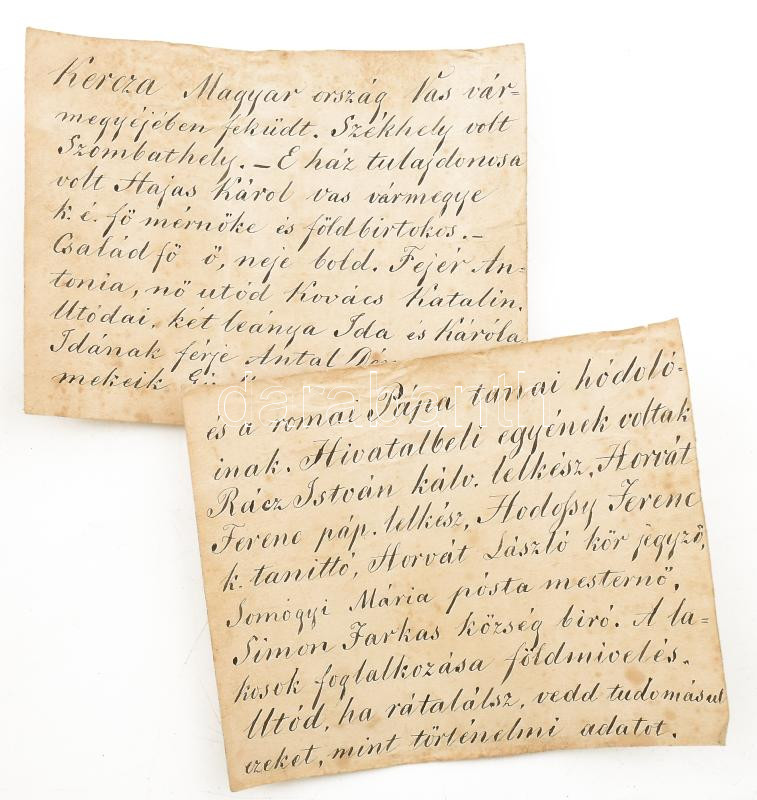 Kercza Magyar ország Vas vár=
megyéjében feküdt. Székhely volt
Szombathely. – E ház tulajdonosa
volt Hajas Károl vas vármegye
k. é. fő mérnöke és földbirtokos. –
Család fő ő, neje bold. Fejér An=
tonia, nő utód Kovács Katalin.
Utódai, két leánya Ida és Károla
Idának férje Antal
mekeik
és a romai Pápa tanai hódoló=
inak. Hivatalbeli egyének voltak
Rácz István kálv. lelkész, Horvát
Ferenc páp. lelkész, Hodossy Ferenc
k. tanittó, Horvát László kör jegyző,
Somogyi Mária pósta mesternő,
Simon Farkas község biró. A la=
kosok foglalkozása földmivelés.
Utód, ha rátalálsz, vedd tudomásul
ezeket, mint történelmi adatot.
darabanth